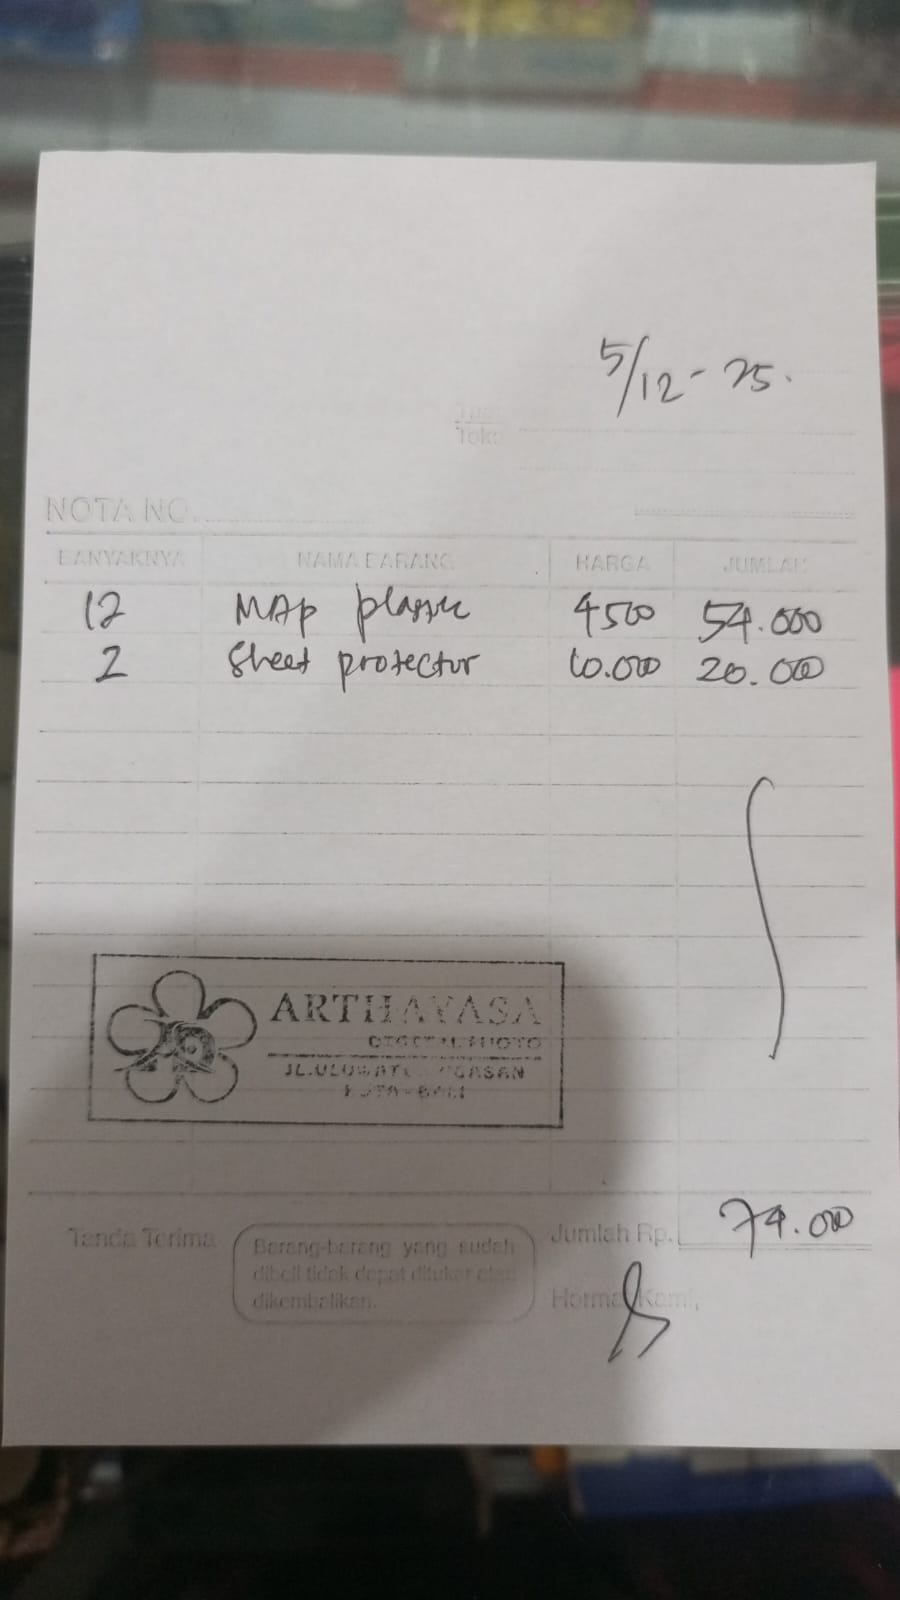 5/12-25.
Tuan
Toko
NOTA NO.
BANYAKNYA NAMA BARANG HARGA JUMLAH
12 MAp plastic 4500 54.000
2 Sheet protector 10.000 20.000
ARTHAYASA
DIGITAL PHOTO
JL.ULUWATU UNGASAN
KUTA - BALI
Tanda Terima
Barang-barang yang sudah
dibeli tidak dapat ditukar atau
dikembalikan.
Jumlah Rp. 74.000
Hormat Kami,